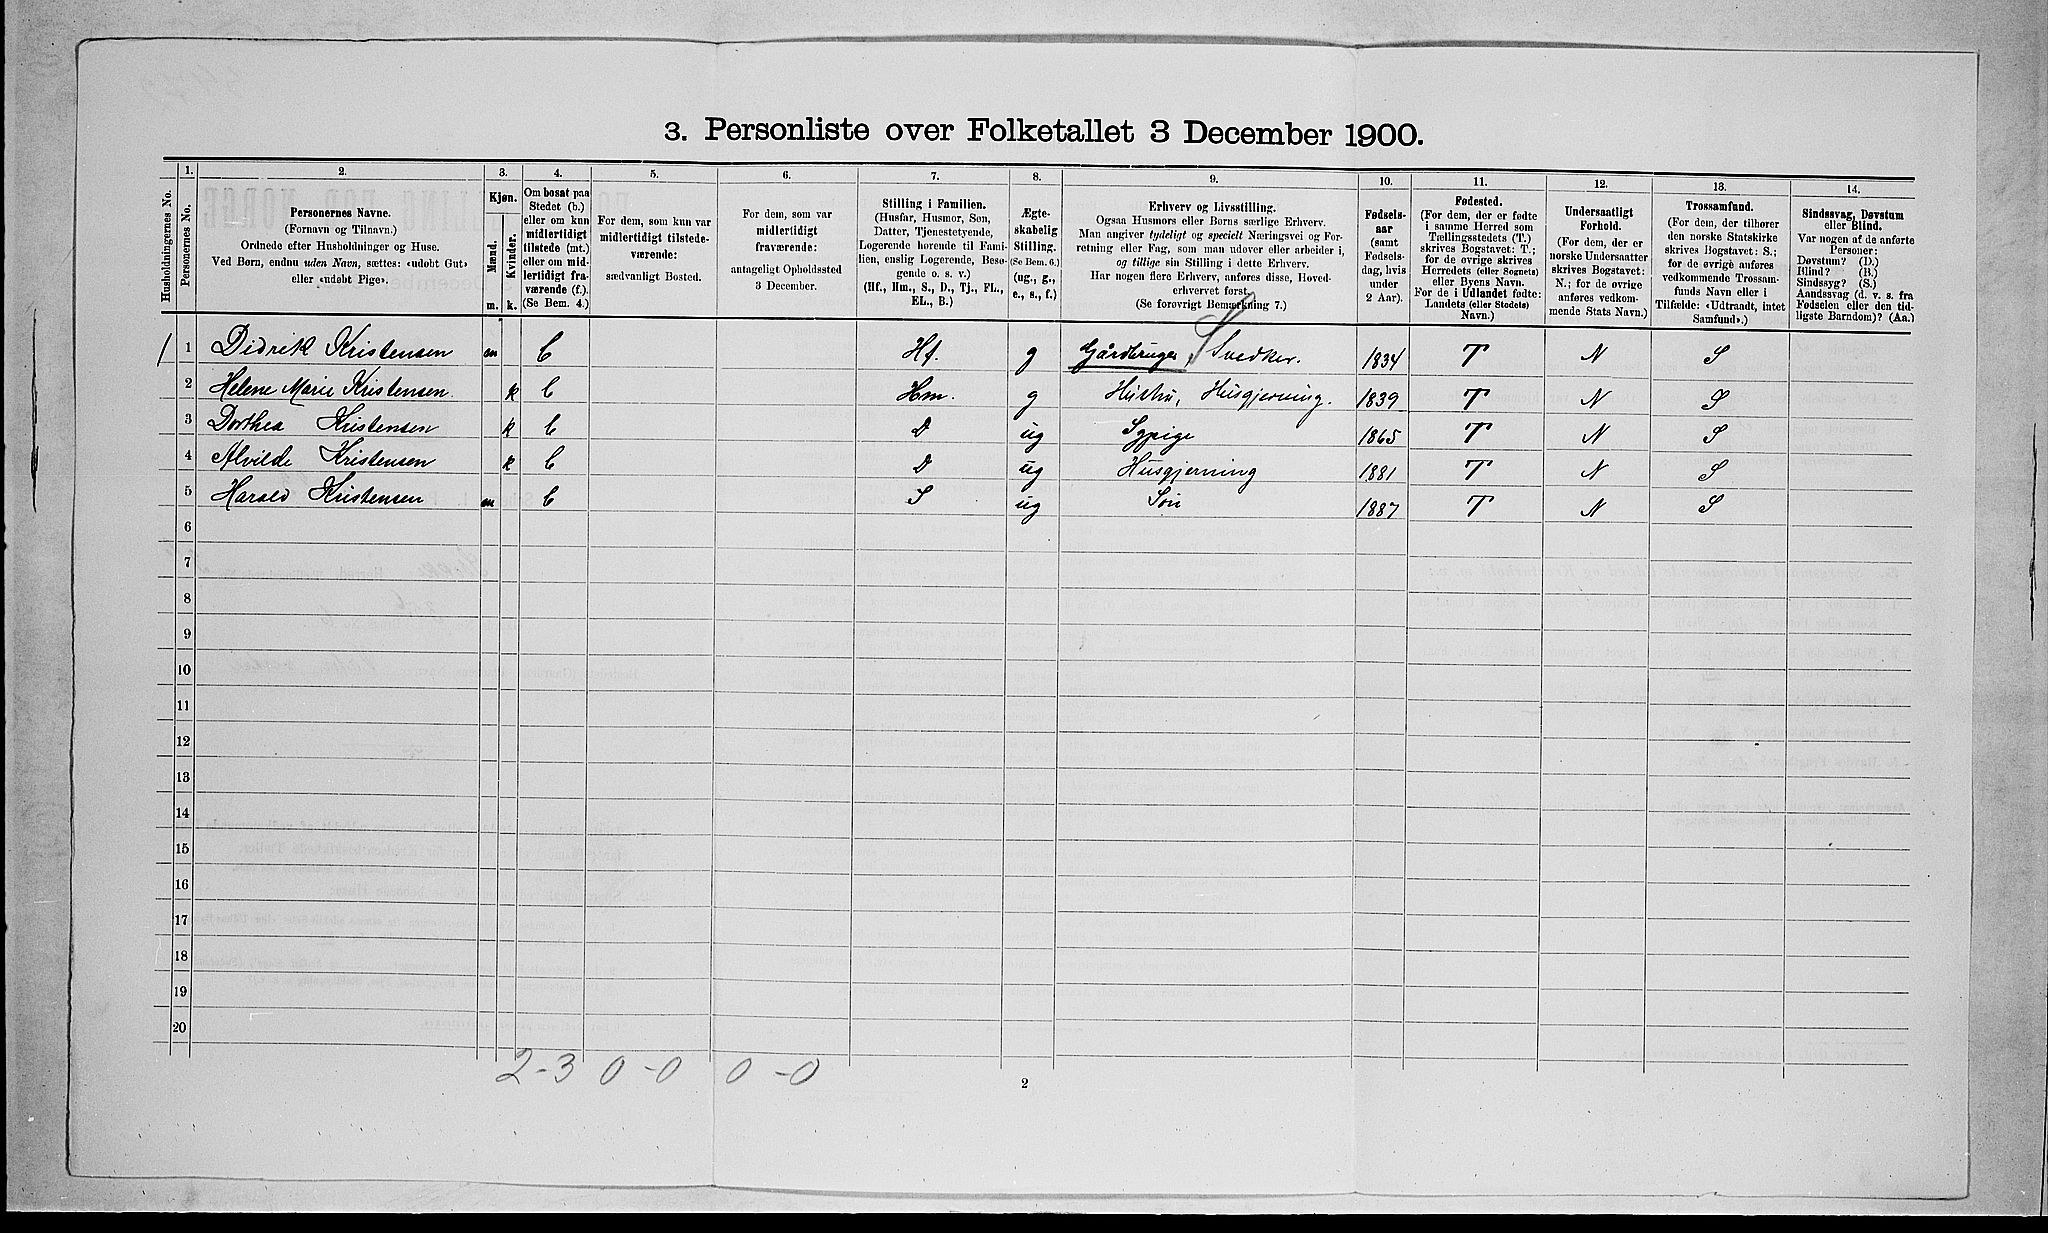 3. Personliste over Folketallet 3 December 1900.
Husholdningernes No.
1.
Personernes No.
2.
Personernes Navne.
(Fornavn og Tilnavn.)
Ordnede efter Husholdninger og Huse.
Ved Børn, endnu uden Navn, sættes: «udøbt Gut»
eller «udøbt Pige».
3.
Kjøn.
Mænd.
Kvinder.
m.
k.
4.
Om bosat paa
Stedet (b.)
eller om kun
midlertidigt
tilstede (mt.)
eller om mid-
lertidigt fra-
værende (f.).
(Se Bem. 4.)
5.
For dem, som kun var
midlertidigt tilstede-
værende:
sædvanligt Bosted.
6.
For dem, som var
midlertidigt
fraværende:
antageligt Opholdssted
3 December.
7.
Stilling i Familien.
(Husfar, Husmor, Søn,
Datter, Tjenestetyende,
Logerende hørende til Fami-
lien, enslig Logerende, Besø-
gende o. s. v.)
(Hf., Hm., S., D., Tj., FL.,
EL., B.)
8.
Ægte-
skabelig
Stilling.
(Se Bem. 6.)
(ug., g.,
e., s., f.)
9.
Erhverv og Livsstilling.
Ogsaa Husmors eller Børns særlige Erhverv.
Man angiver tydeligt og specielt Næringsvei og For-
retning eller Fag, som man udøver eller arbeider i,
og tillige sin Stilling i dette Erhverv.
Har nogen flere Erhverv, anføres disse, Hoved-
erhvervet først.
(Se forøvrigt Bemærkning 7.)
10.
Fødsels-
aar
(samt
Fødsels-
dag, hvis
under
2 Aar).
11.
Fødested.
(For dem, der er fødte
i samme Herred som
Tællingsstedets (T.)
skrives Bogstavet: T.;
for de øvrige skrives
Herredets (eller Sognets)
eller Byens Navn.
For de i Udlandet fødte:
Landets (eller Stedets)
Navn.)
12.
Undersaatligt
Forhold.
(For dem, der er
norske Undersaatter
skrives Bogstavet:
N.; for de øvrige
anføres vedkom-
mende Stats Navn.)
13.
Trossamfund.
(For dem, der tilhører
den norske Statskirke
skrives Bogstavet: S.;
for de øvrige anføres
vedkommende Trossam-
funds Navn eller i
Tilfælde: «Udtraadt, intet
Samfund».)
14.
Sindssvag, Døvstum
eller Blind.
Var nogen af de anførte
Personer:
Døvstum? (D.)
Blind? (B.)
Sindssyg? (S.)
Aandssvag (d. v. s. fra
Fødselen eller den tid-
ligste Barndom)? (Aa.)
1 1 Didrik Kristensen m b Hf. g Gårdbruger, Snedker. 1834 T N S
2 Helene Marie Kristensen. k b Hm. g Hustru, Husgjerning. 1839 T N S
3 Dorthea Kristensen k b D ug Sypige 1865 T N S
4 Alvilde Kristensen k b D ug Husgjerning 1881 T N S
5 Harald Kristensen m b S ug Søn 1887 T N S
6
7
8
9
10
11
12
13
14
15
16
17
18
19
20
2-3 0-0 0-0
2